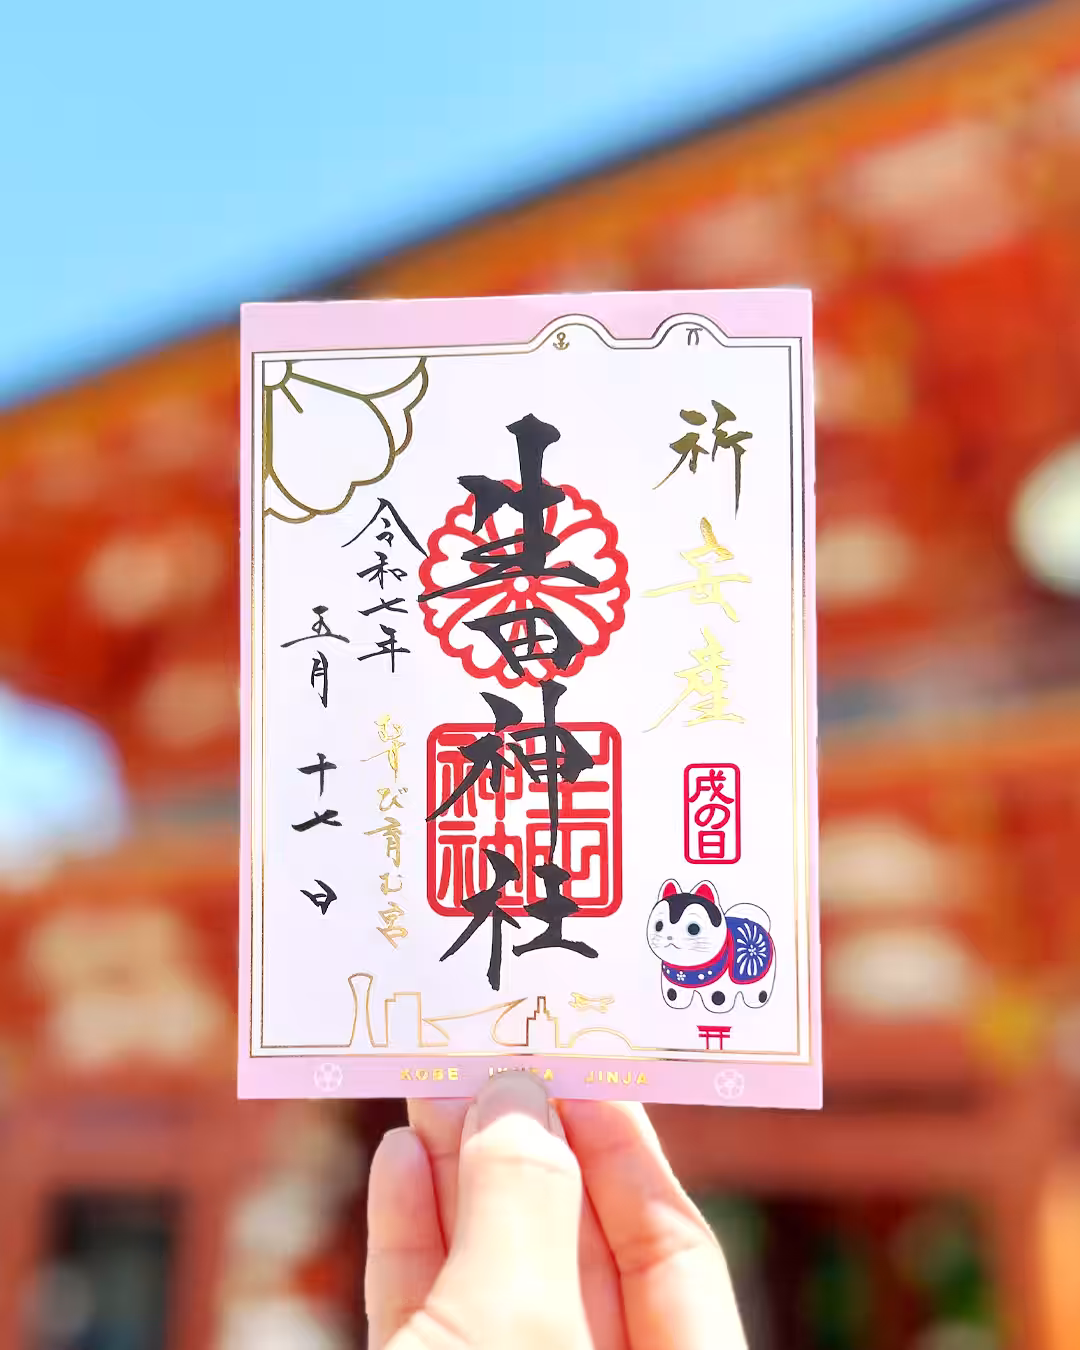 祈
安産
戌の日
生田神社
生田
神社
令和七年
結び育む宮
五月
十七
日
KOBE IKUTA JINJA